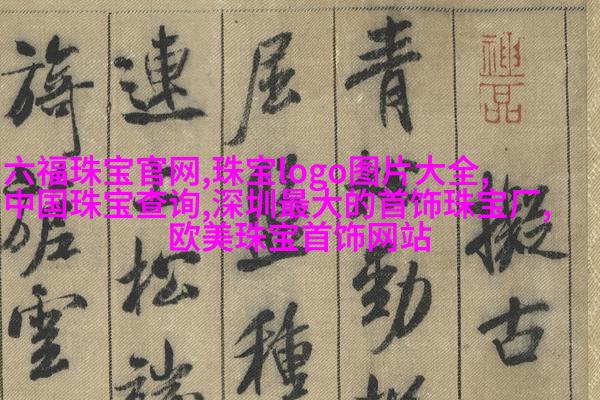 六福珠宝官网,珠宝logo图片大全,
中国珠宝查询,深圳最大的首饰珠宝厂,
欧美珠宝首饰网站
神品
擬古
青松勁挺
屈盤種
連上松端
旖旎雲